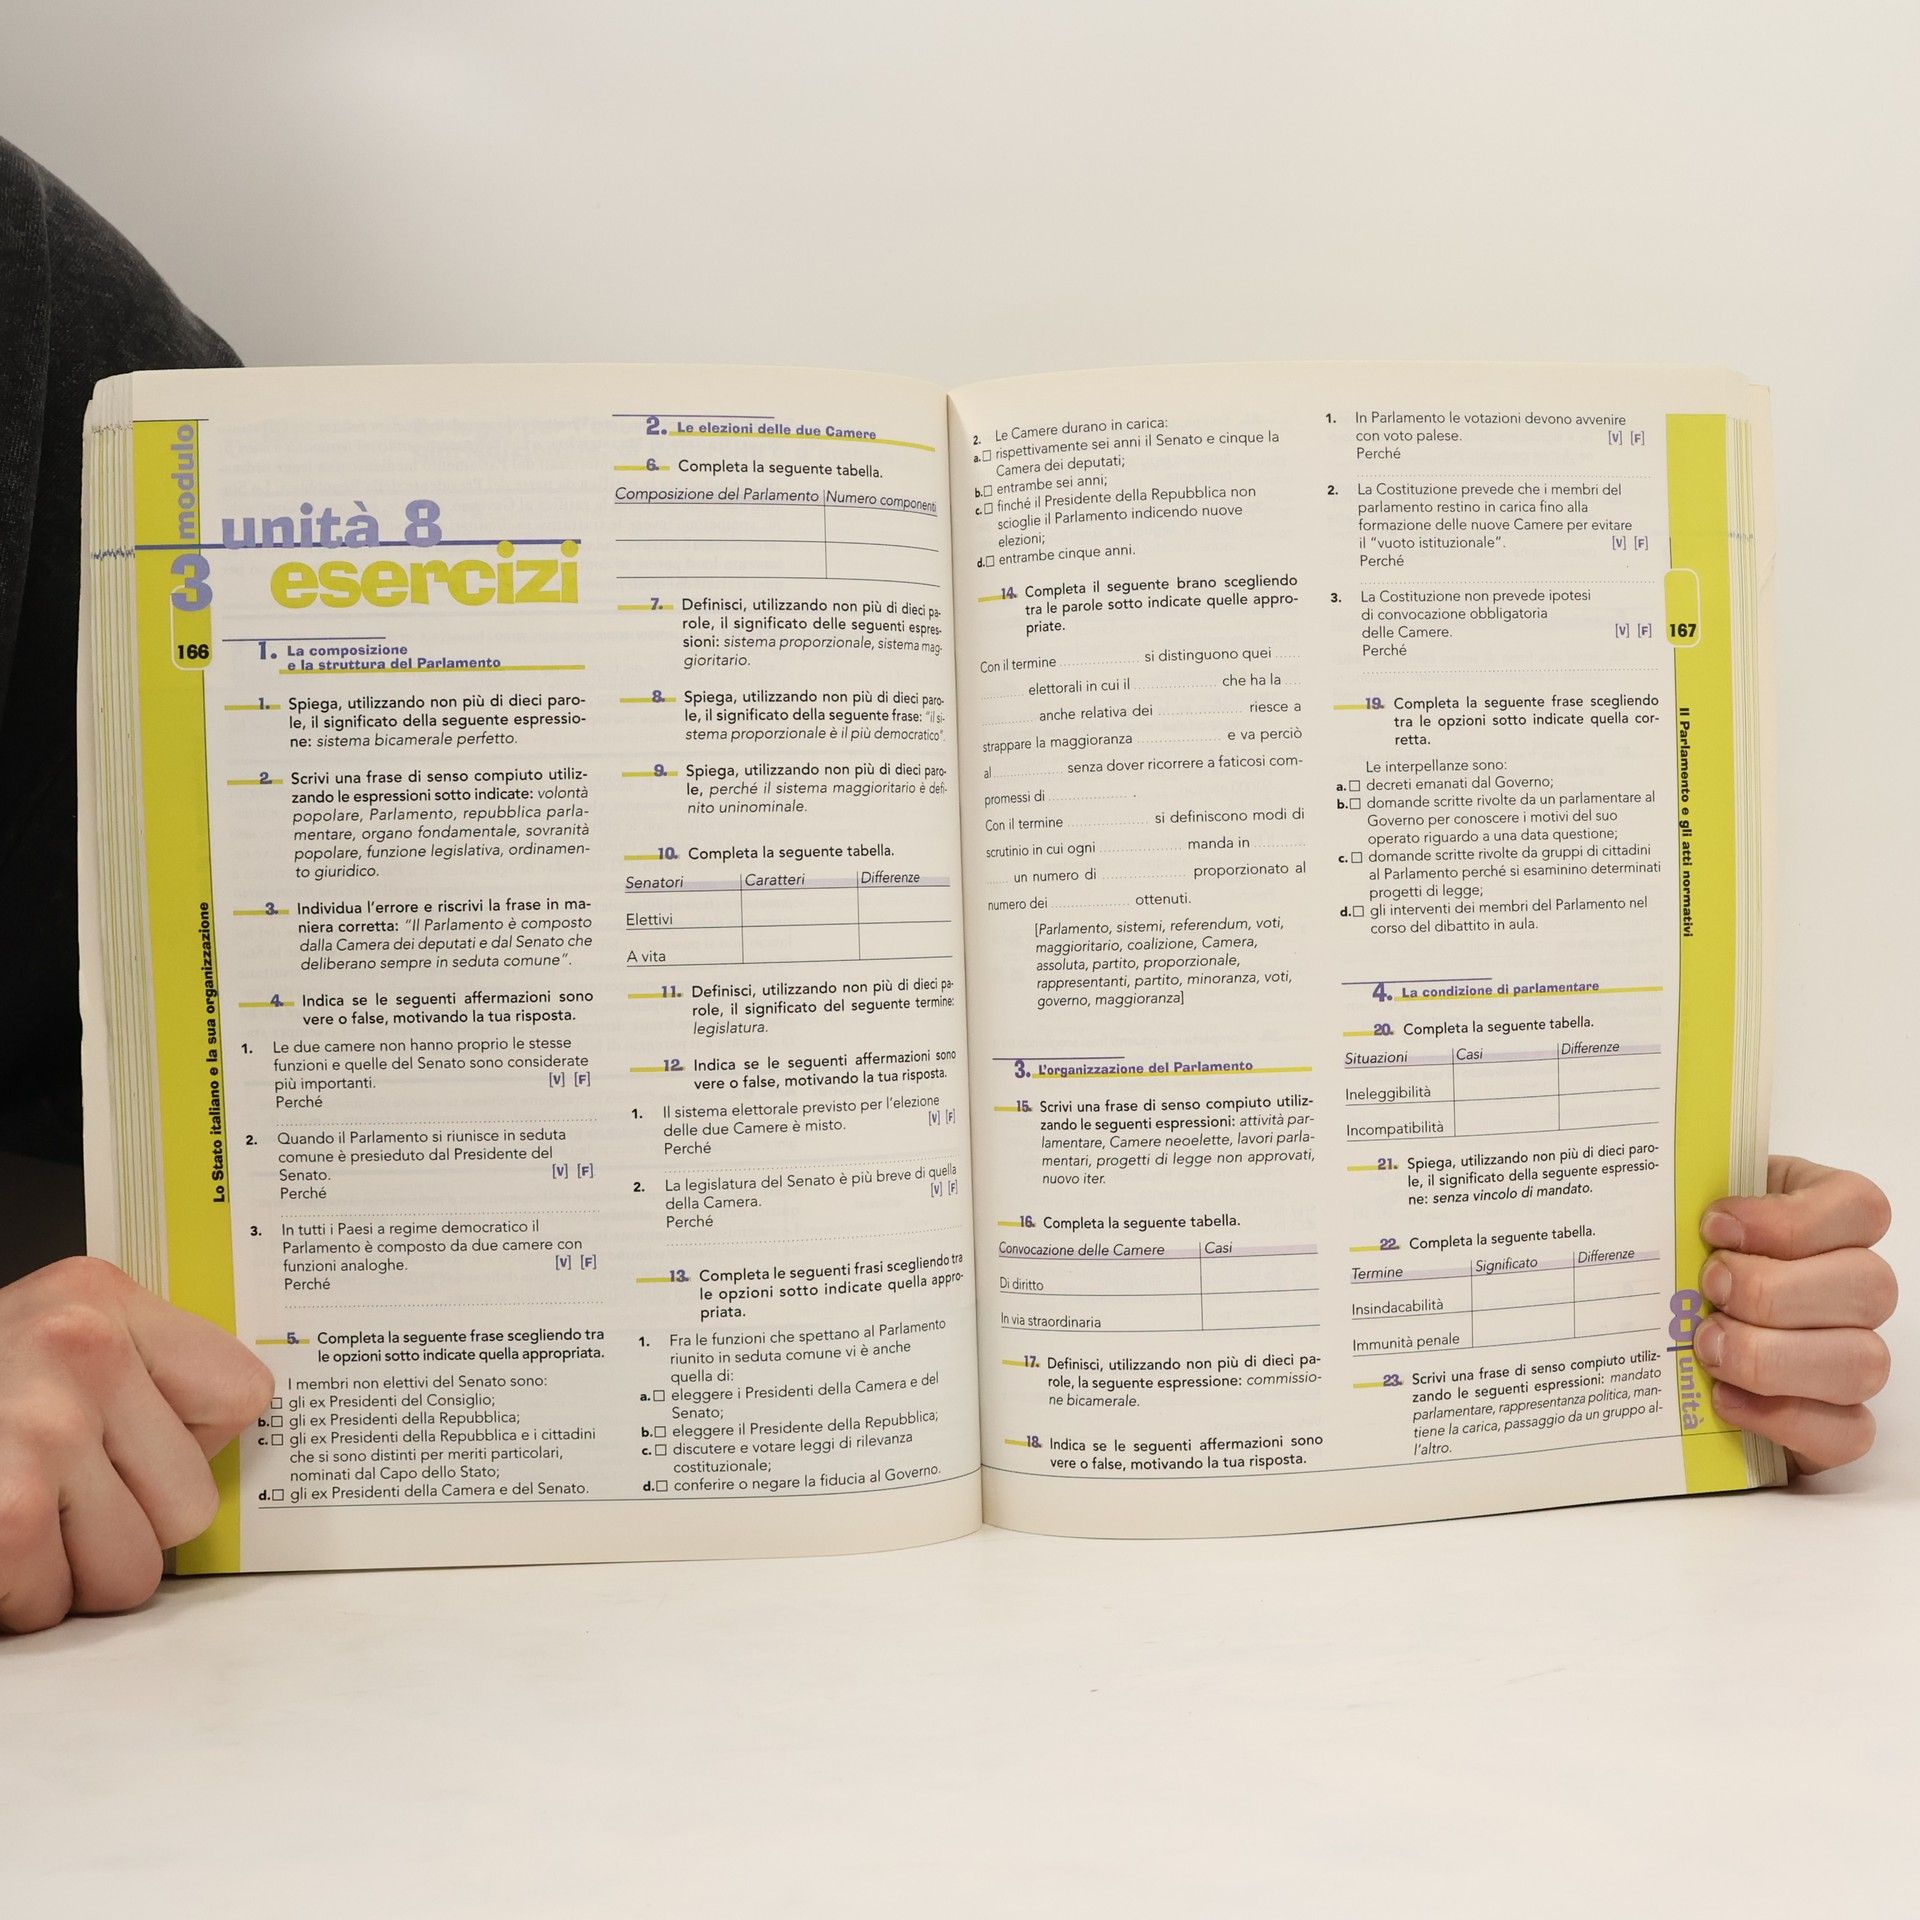 modulo
3
166
Lo Stato italiano e la sua organizzazione
unità 8
esercizi
1. La composizione
e la struttura del Parlamento
1. Spiega, utilizzando non più di dieci paro-
le, il significato della seguente espressio-
ne: sistema bicamerale perfetto.
2. Scrivi una frase di senso compiuto utiliz-
zando le espressioni sotto indicate: volontà
popolare, Parlamento, repubblica parla-
mentare, organo fondamentale, sovranità
popolare, funzione legislativa, ordinamen-
to giuridico.
3. Individua l'errore e riscrivi la frase in ma-
niera corretta: "Il Parlamento è composto
dalla Camera dei deputati e dal Senato che
deliberano sempre in seduta comune".
4. Indica se le seguenti affermazioni sono
vere o false, motivando la tua risposta.
1. Le due camere non hanno proprio le stesse
funzioni e quelle del Senato sono considerate
più importanti. [V] [F]
Perché
2. Quando il Parlamento si riunisce in seduta
comune è presieduto dal Presidente del
Senato. [V] [F]
Perché
3. In tutti i Paesi a regime democratico il
Parlamento è composto da due camere con
funzioni analoghe. [V] [F]
Perché
5. Completa la seguente frase scegliendo tra
le opzioni sotto indicate quella appropriata.
I membri non elettivi del Senato sono:
□ gli ex Presidenti del Consiglio;
b.□ gli ex Presidenti della Repubblica;
c.□ gli ex Presidenti della Repubblica e i cittadini
che si sono distinti per meriti particolari,
nominati dal Capo dello Stato;
d.□ gli ex Presidenti della Camera e del Senato.
2. Le elezioni delle due Camere
6. Completa la seguente tabella.
Composizione del Parlamento Numero componenti
7. Definisci, utilizzando non più di dieci pa-
role, il significato delle seguenti espres-
sioni: sistema proporzionale, sistema mag-
gioritario.
8. Spiega, utilizzando non più di dieci paro-
le, il significato della seguente frase: "il si-
stema proporzionale è il più democratico".
9. Spiega, utilizzando non più di dieci paro-
le, perché il sistema maggioritario è defi-
nito uninominale.
10. Completa la seguente tabella.
Senatori Caratteri Differenze
Elettivi
A vita
11. Definisci, utilizzando non più di dieci pa-
role, il significato del seguente termine:
legislatura.
12. Indica se le seguenti affermazioni sono
vere o false, motivando la tua risposta.
1. Il sistema elettorale previsto per l'elezione
delle due Camere è misto. [V] [F]
Perché
2. La legislatura del Senato è più breve di quella
della Camera. [V] [F]
Perché
13. Completa le seguenti frasi scegliendo tra
le opzioni sotto indicate quella appro-
priata.
1. Fra le funzioni che spettano al Parlamento
riunito in seduta comune vi è anche
quella di:
a.□ eleggere i Presidenti della Camera e del
Senato;
b.□ eleggere il Presidente della Repubblica;
c.□ discutere e votare leggi di rilevanza
costituzionale;
d.□ conferire o negare la fiducia al Governo.
2. Le Camere durano in carica:
a.□ rispettivamente sei anni il Senato e cinque la
Camera dei deputati;
b.□ entrambe sei anni;
c.□ finché il Presidente della Repubblica non
scioglie il Parlamento indicendo nuove
elezioni;
d.□ entrambe cinque anni.
14. Completa il seguente brano scegliendo
tra le parole sotto indicate quelle appro-
priate.
Con il termine .................... si distinguono quei ......
........... elettorali in cui il .................... che ha la ....
............. anche relativa dei .................... riesce a
strappare la maggioranza .................... e va perciò
al .................... senza dover ricorrere a faticosi com-
promessi di .................... .
Con il termine .................... si definiscono modi di
scrutinio in cui ogni .................... manda in ............
...... un numero di .................... proporzionato al
numero dei .................... ottenuti.
[Parlamento, sistemi, referendum, voti,
maggioritario, coalizione, Camera,
assoluta, partito, proporzionale,
rappresentanti, partito, minoranza, voti,
governo, maggioranza]
3. L'organizzazione del Parlamento
15. Scrivi una frase di senso compiuto utiliz-
zando le seguenti espressioni: attività par-
lamentare, Camere neoelette, lavori parla-
mentari, progetti di legge non approvati,
nuovo iter.
16. Completa la seguente tabella.
Convocazione delle Camere Casi
Di diritto
In via straordinaria
17. Definisci, utilizzando non più di dieci pa-
role, la seguente espressione: commissio-
ne bicamerale.
18. Indica se le seguenti affermazioni sono
vere o false, motivando la tua risposta.
1. In Parlamento le votazioni devono avvenire
con voto palese. [V] [F]
Perché
2. La Costituzione prevede che i membri del
parlamento restino in carica fino alla
formazione delle nuove Camere per evitare
il "vuoto istituzionale". [V] [F]
Perché
3. La Costituzione non prevede ipotesi
di convocazione obbligatoria
delle Camere. [V] [F]
Perché
19. Completa la seguente frase scegliendo
tra le opzioni sotto indicate quella cor-
retta.
Le interpellanze sono:
a.□ decreti emanati dal Governo;
b.□ domande scritte rivolte da un parlamentare al
Governo per conoscere i motivi del suo
operato riguardo a una data questione;
c.□ domande scritte rivolte da gruppi di cittadini
al Parlamento perché si esaminino determinati
progetti di legge;
d.□ gli interventi dei membri del Parlamento nel
corso del dibattito in aula.
4. La condizione di parlamentare
20. Completa la seguente tabella.
Situazioni Casi Differenze
Ineleggibilità
Incompatibilità
21. Spiega, utilizzando non più di dieci paro-
le, il significato della seguente espressio-
ne: senza vincolo di mandato.
22. Completa la seguente tabella.
Termine Significato Differenze
Insindacabilità
Immunità penale
23. Scrivi una frase di senso compiuto utiliz-
zando le seguenti espressioni: mandato
parlamentare, rappresentanza politica, man-
tiene la carica, passaggio da un gruppo al-
l'altro.
167
Il Parlamento e gli atti normativi
8 unità